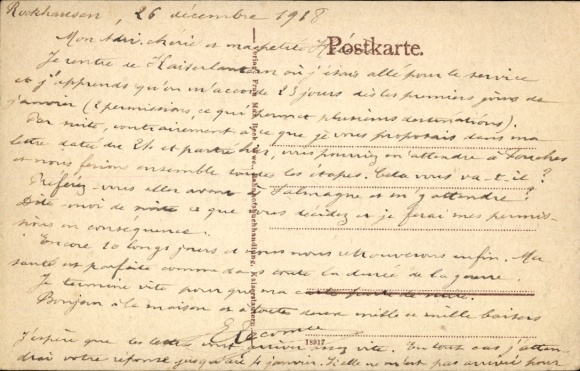 Rockhausen, 26 décembre 1918
Postkarte.
Mon chérie et ma petite
Je rentre de Kaiserlautern où j'étais allé pour le service
et j'apprends qu'on m'accorde 23 jours dès les premiers jours de
janvier (2 permissions, ce qui permet plusieurs destinations).
Par suite, contrairement à ce que je vous proposais dans ma
lettre datée du 24 et partie hier, vous pourriez m'attendre à
et nous ferions ensemble toutes les étapes. Cela vous va-t-il ?
Préférez-vous aller à et m'y attendre ?
Dites-moi de suite ce que vous décidez et je ferai mes permis-
sions en conséquence.
Encore 10 longs jours et nous nous retrouverons enfin. Ma
santé est parfaite comme dans toute la durée de la guerre.
Je termine vite pour que ma carte parte de suite.
Bonjour à la maison et à toutes deux mille et mille baisers
E. Lecomte
18917
J'espère que les lettres vont arriver assez vite. En tout cas j'atten-
drai votre réponse jusqu'au 4 janvier. Si elle ne m'est pas arrivée pour